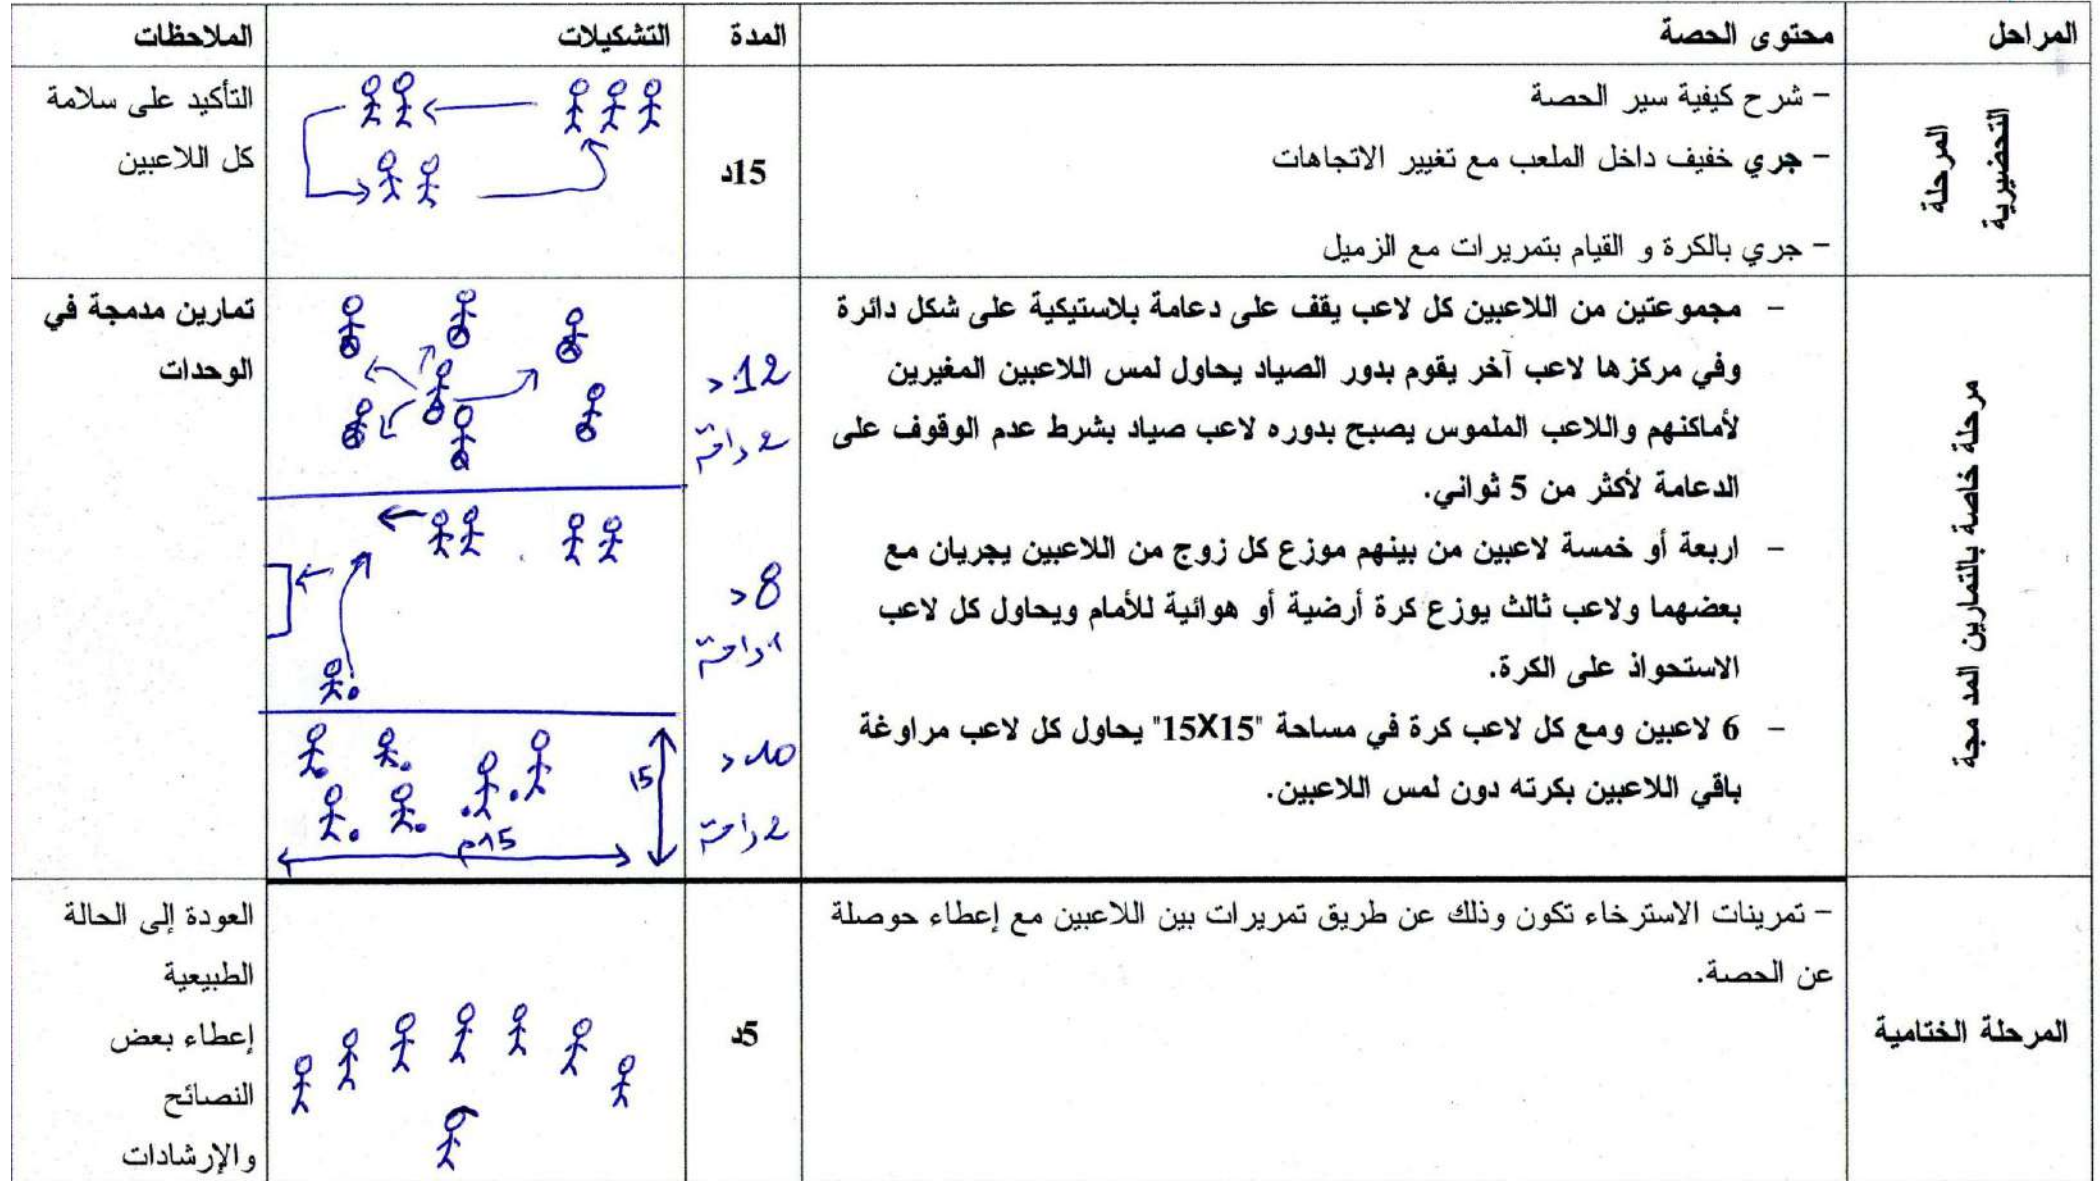 المراحل
محتوى الحصة
المدة
التشكيلات
الملاحظات
المرحلة
التحضيرية
– شرح كيفية سير الحصة
– جري خفيف داخل الملعب مع تغيير الاتجاهات
– جري بالكرة و القيام بتمريرات مع الزميل
15د
التأكيد على سلامة
كل اللاعبين
مرحلة خاصة بالتمارين المد مجة
– مجموعتين من اللاعبين كل لاعب يقف على دعامة بلاستيكية على شكل دائرة
وفي مركزها لاعب آخر يقوم بدور الصياد يحاول لمس اللاعبين المغيرين
لأماكنهم واللاعب الملموس يصبح بدوره لاعب صياد بشرط عدم الوقوف على
الدعامة لأكثر من 5 ثواني.
– اربعة أو خمسة لاعبين من بينهم موزع كل زوج من اللاعبين يجريان مع
بعضهما ولاعب ثالث يوزع كرة أرضية أو هوائية للأمام ويحاول كل لاعب
الاستحواذ على الكرة.
– 6 لاعبين ومع كل لاعب كرة في مساحة "15X15" يحاول كل لاعب مراوغة
باقي اللاعبين بكرته دون لمس اللاعبين.
12د
2 راحة
8د
1 راحة
10د
2 راحة
15
15م
تمارين مدمجة في
الوحدات
المرحلة الختامية
– تمرينات الاسترخاء تكون وذلك عن طريق تمريرات بين اللاعبين مع إعطاء حوصلة
عن الحصة.
5د
العودة إلى الحالة
الطبيعية
إعطاء بعض
النصائح
والإرشادات